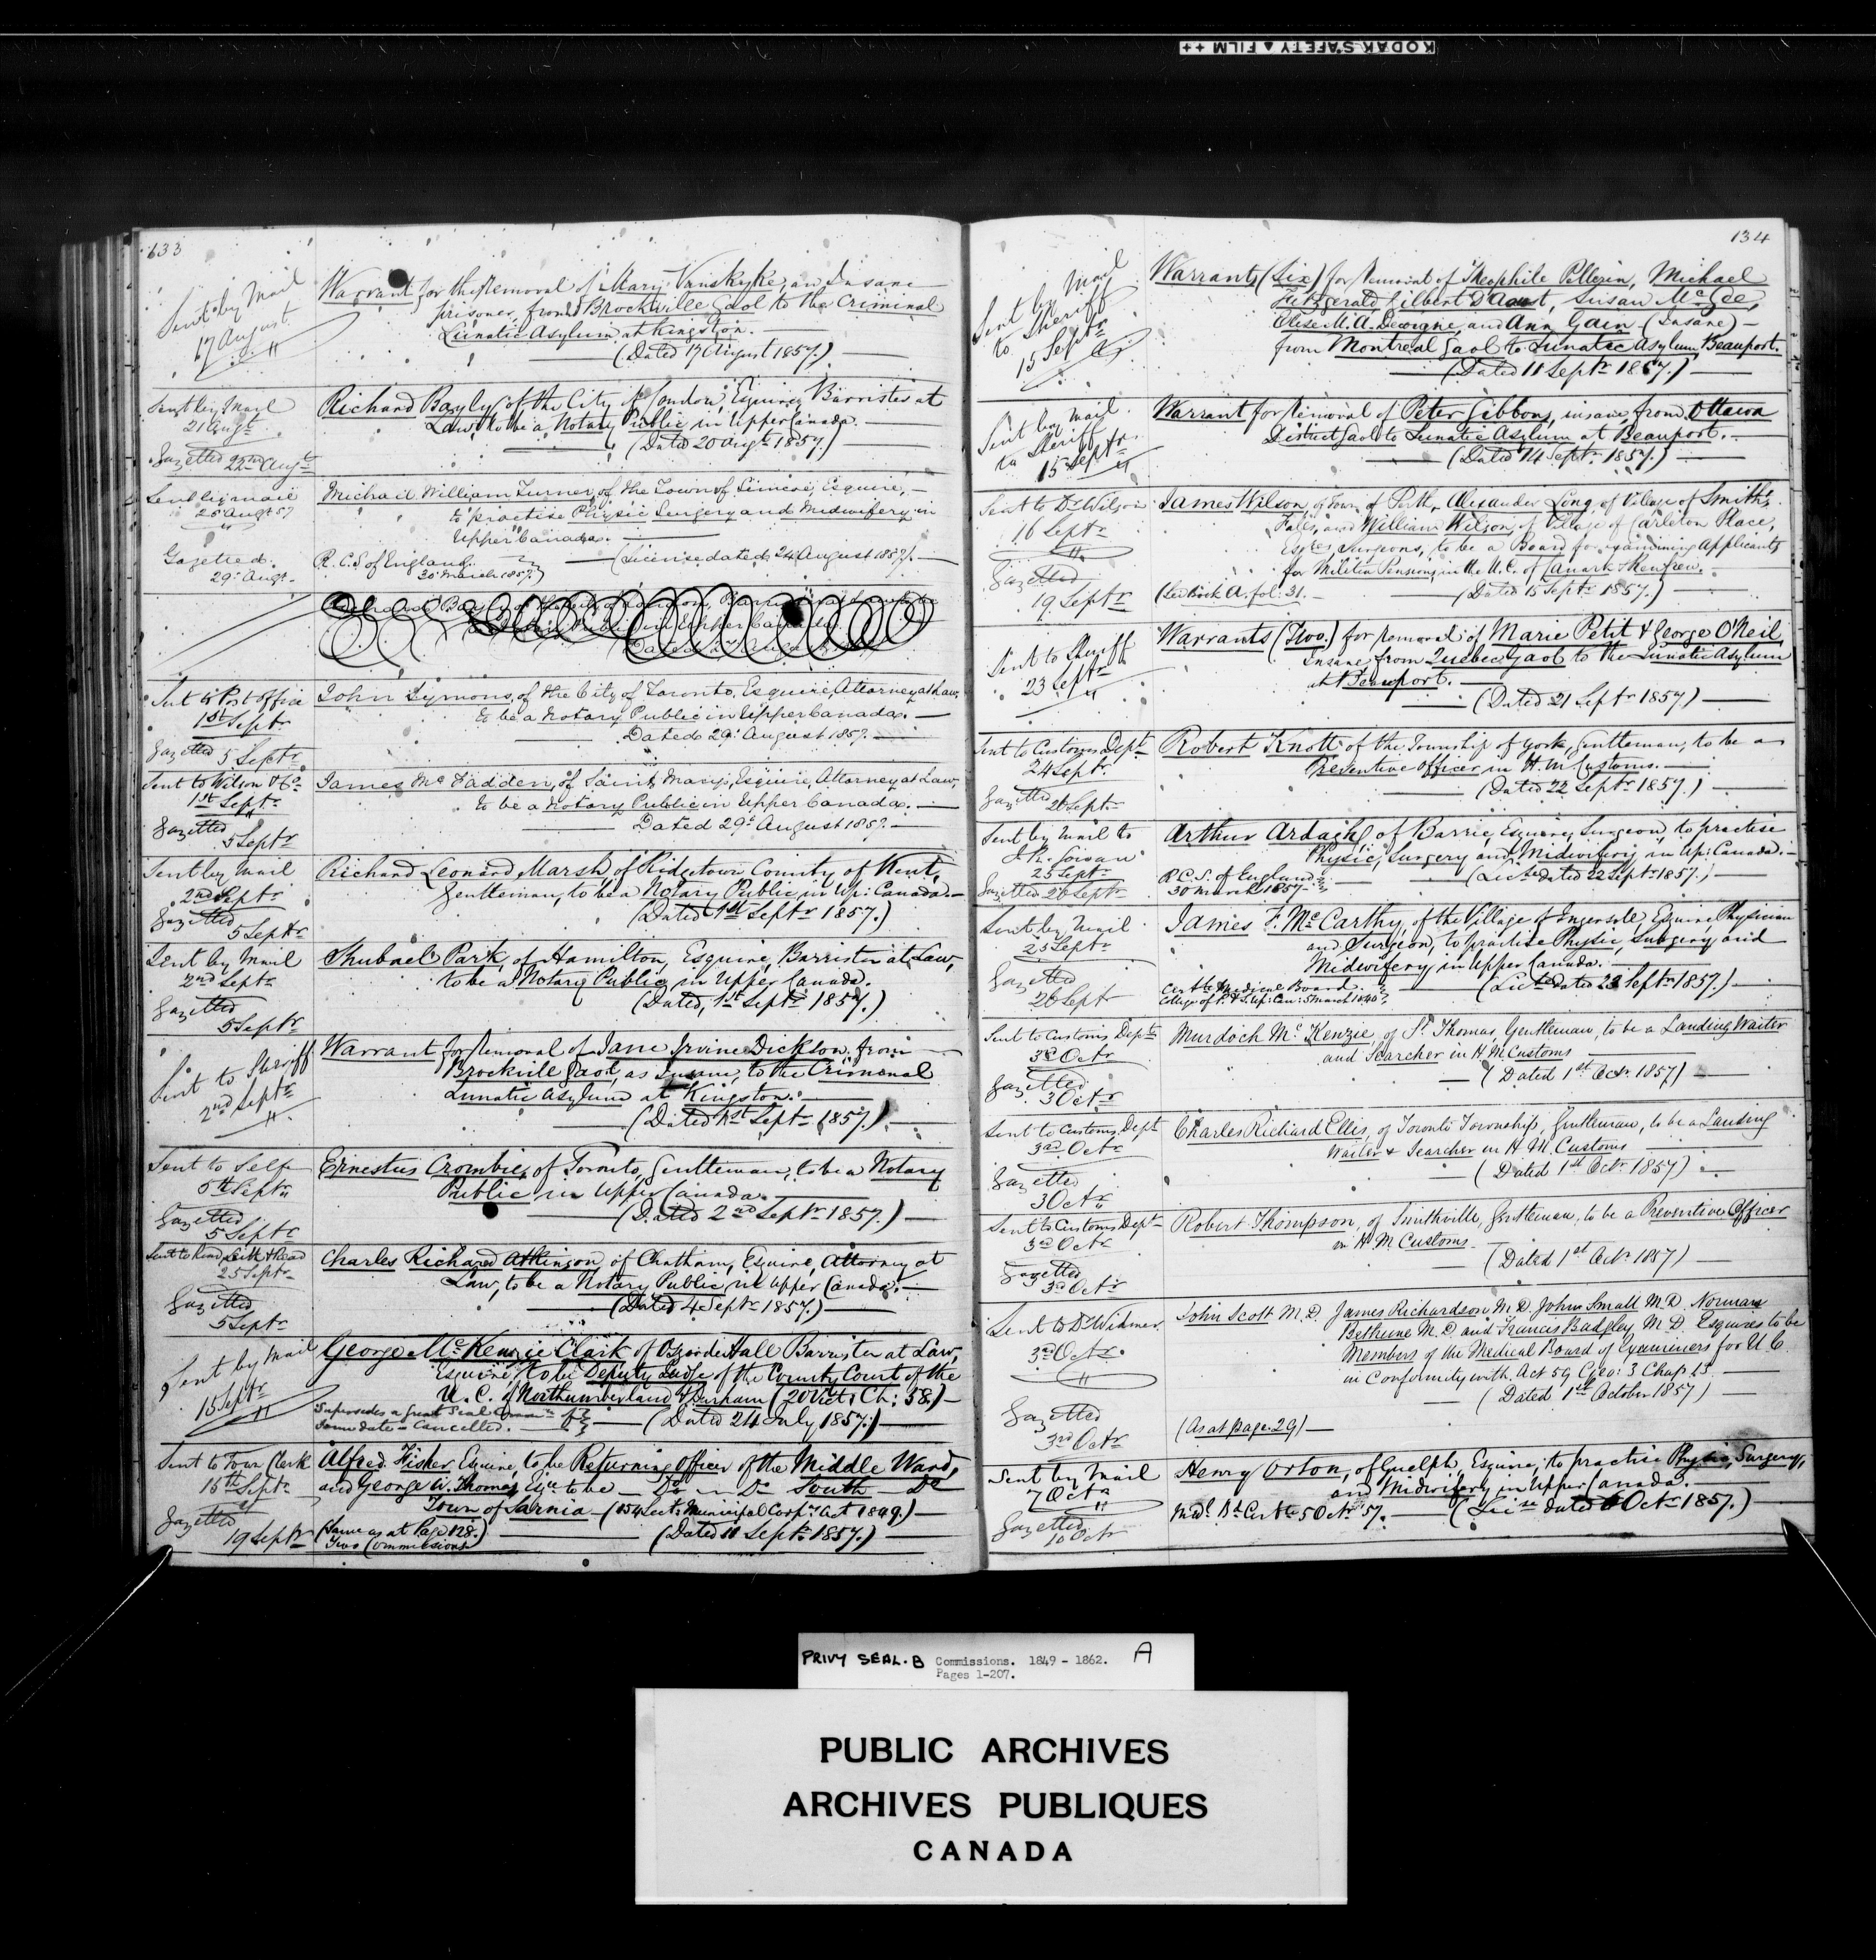 KODAK SAFETY ▲ FILM ++
133
Sent by Mail
17 August
Warrant for the Removal of Mary Vanskyke, an Insane
prisoner, from Brockville Gaol to the Criminal
Lunatic Asylum at Kingston.
(Dated 17 August 1857.)
Sent by Mail
21 Augt
Gazetted 22nd Augt
Richard Bayly of the City of London, Esquire, Barrister at
Law, to be a Notary Public in Upper Canada.
(Dated 20 Augt 1857.)
Sent by mail
25 Augt 57
Gazetted.
29 Augt
Michael William Turner, of the Town of Simcoe, Esquire,
to practise Physic Surgery and Midwifery in
Upper Canada.
R.C.S. of England
30 March 1857
(License dated 24 August 1857.)
Sent to Post office
1st Septr
Gazetted 5 Septr
John Symons, of the City of Toronto, Esquire, Attorney at Law,
to be a Notary Public in Upper Canada.
Dated 29 August 1857.
Sent to Wilson & Co
1st Septr
Gazetted
5 Septr
James Mc Fadden, of Saint Marys, Esquire, Attorney at Law,
to be a Notary Public in Upper Canada.
Dated 29 August 1857.
Sent by Mail
2nd Septr
Gazetted
5 Septr
Richard Leonard Marsh of Ridgetown County of Kent,
Gentleman, to be a Notary Public in Up: Canada.
(Dated 1st Septr 1857.)
Sent by Mail
2nd Septr
Gazetted
5 Septr
Shubael Park, of Hamilton, Esquire, Barrister at Law,
to be a Notary Public in Upper Canada.
(Dated, 1st Septr 1857.)
Sent to Sheriff
2nd Septr
Warrant for Removal of Jane Irvine Dickson, from
Brockville Gaol, as Insane, to the Criminal
Lunatic Asylum at Kingston.
(Dated 1st Septr 1857.)
Sent to Self
5th Septr
Gazetted
5 Septr
Ernestus Crombie, of Toronto, Gentleman, to be a Notary
Public in Upper Canada.
(Dated 2nd Septr 1857.)
25 Septr
Gazetted
5 Septr
Charles Richard Atkinson of Chatham, Esquire, Attorney at
Law, to be a Notary Public in Upper Canada.
(Dated 4 Septr 1857.)
Sent by Mail
15 Septr
George McKenzie Clark of Osgoode Hall Barrister at Law,
Esquire, to be Deputy Judge of the County Court of the
U. C. of Northumberland & Durham (20 Vict: Ch: 58.)
Supersedes a Great Seal Commn of
same date - Cancelled.
(Dated 24 July 1857.)
Sent to Town Clerk
15th Septr
Gazetted
19 Septr
Alfred Fisher, Esquire, to be Returning Officer of the Middle Ward,
and George W. Thomas, Esqre to be Do Do South Do
Town of Sarnia (154 Sect: Municipal Corp: Act 1849.)
(Same as at Page 128.)
Two Commissions
(Dated 11 Septr 1857.)
134
Sent by Mail
to Sheriff
15 Septr
Warrants (Six) for Removal of Theophile Pellerin, Michael
Fitzgerald, Gilbert D'Aoust, Susan McGee,
Elise M. A. Devoigne, and Ann Gain (Insane)
from Montreal Gaol to Lunatic Asylum, Beauport.
(Dated 11 Septr 1857.)
Sent by Mail
to Sheriff
15 Septr
Warrant for Removal of Peter Gibbons, insane, from Ottawa
District Gaol to Lunatic Asylum at Beauport.
(Dated 14 Septr 1857.)
Sent to Dr Wilson
16 Septr
Gazetted
19 Septr
James Wilson, of Town of Perth, Alexander Long, of Village of Smith's
Falls, and William Wilson, of Village of Carleton Place,
Esqres, Surgeons, to be a Board for examining Applicants
for Militia Pensions, in the U. C. of Lanark & Renfrew.
(See Book A. fol: 31.
(Dated 15 Septr 1857.)
Sent to Sheriff
23 Septr
Warrants (Two.) for removal of Marie Petit & George O'Neil
Insane, from Quebec Gaol to the Lunatic Asylum
at Beauport.
(Dated 21 Septr 1857.)
Sent to Customs Dept
24 Septr
Gazetted 26 Septr
Robert Knott of the Township of York, Gentleman, to be a
Preventive Officer in H. M. Customs.
(Dated 22 Septr 1857.)
Sent by Mail to
J. R. Gowan
25 Septr
Gazetted 26 Septr
Arthur Ardagh, of Barrie, Esquire, Surgeon, to practise
Physic, Surgery and Midwifery in Up: Canada.
R.C.S. of England
30 March 1857
(Licse dated 22 Septr 1857.)
Sent by Mail
25 Septr
Gazetted
26 Septr
James F. McCarthy, of the Village of Ingersoll, Esquire, Physician
and Surgeon, to practise Physic, Surgery and
Midwifery in Upper Canada.
Certte Medical Board
College of P. & S. Up: Can: 5 March 1840
(Licse dated 23 Septr 1857.)
Sent to Customs Dept
3rd Octr
Gazetted
3 Octr
Murdoch McKenzie, of St Thomas, Gentleman, to be a Landing Waiter
and Searcher in H. M. Customs
(Dated 1st Octr 1857)
Sent to Customs Dept
3rd Octr
Gazetted
3 Octr
Charles Richard Ellis, of Toronto Township, Gentleman, to be a Landing
Waiter & Searcher in H. M. Customs
(Dated 1st Octr 1857)
Sent to Customs Dept
3rd Octr
Gazetted
3rd Octr
Robert Thompson, of Smithville, Gentleman, to be a Preventive Officer
in H. M. Customs.
(Dated 1st Octr 1857)
Sent to Dr Widmer
3rd Octr
Gazetted
3rd Octr
John Scott M.D. James Richardson M.D. John Small M.D. Norman
Bethune M.D. and Francis Badgley M.D. Esquires to be
Members of the Medical Board of Examiners for U. C.
in Conformity with Act 59 Geo: 3 Chap 13.
(Dated 1st October 1857)
(As at page 29)
Sent by Mail
7 Octr
Gazetted
10 Octr
Henry Orton, of Guelph, Esquire, to practise Physic, Surgery,
and Midwifery in Upper Canada.
Medl Bd Certte 5 Octr 57.
(Licse dated 6 Octr 1857.)
PRIVY SEAL. B Commissions. 1849 - 1862. A
Pages 1-207.
PUBLIC ARCHIVES
ARCHIVES PUBLIQUES
CANADA